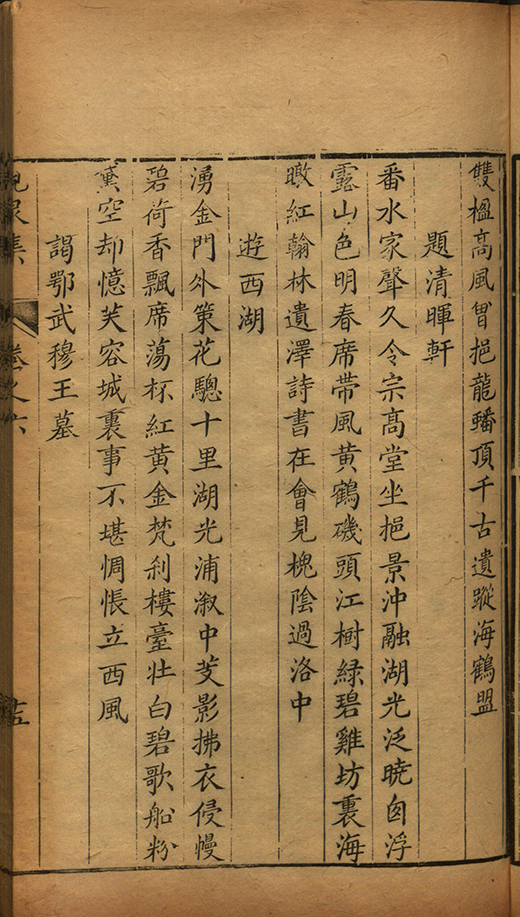 雙楹高風曾挹龍蟠頂千古遺蹤海鶴盟
題清暉軒
番水家聲久令宗髙堂坐挹景沖融湖光泛曉囱浮
靄山色明春席帶風黄鶴磯頭江樹緑碧雞坊裏海
暾紅翰林遺澤詩書在會見槐陰過洛中
遊西湖
湧金門外策花驄十里湖光浦漵中芰影拂衣侵幔
碧荷香飄席蕩杯紅黄金梵刹樓臺壯白碧歌船粉
黛空却憶芙容城裏事不堪惆悵立西風
謁鄂武穆王墓
集
卷之六